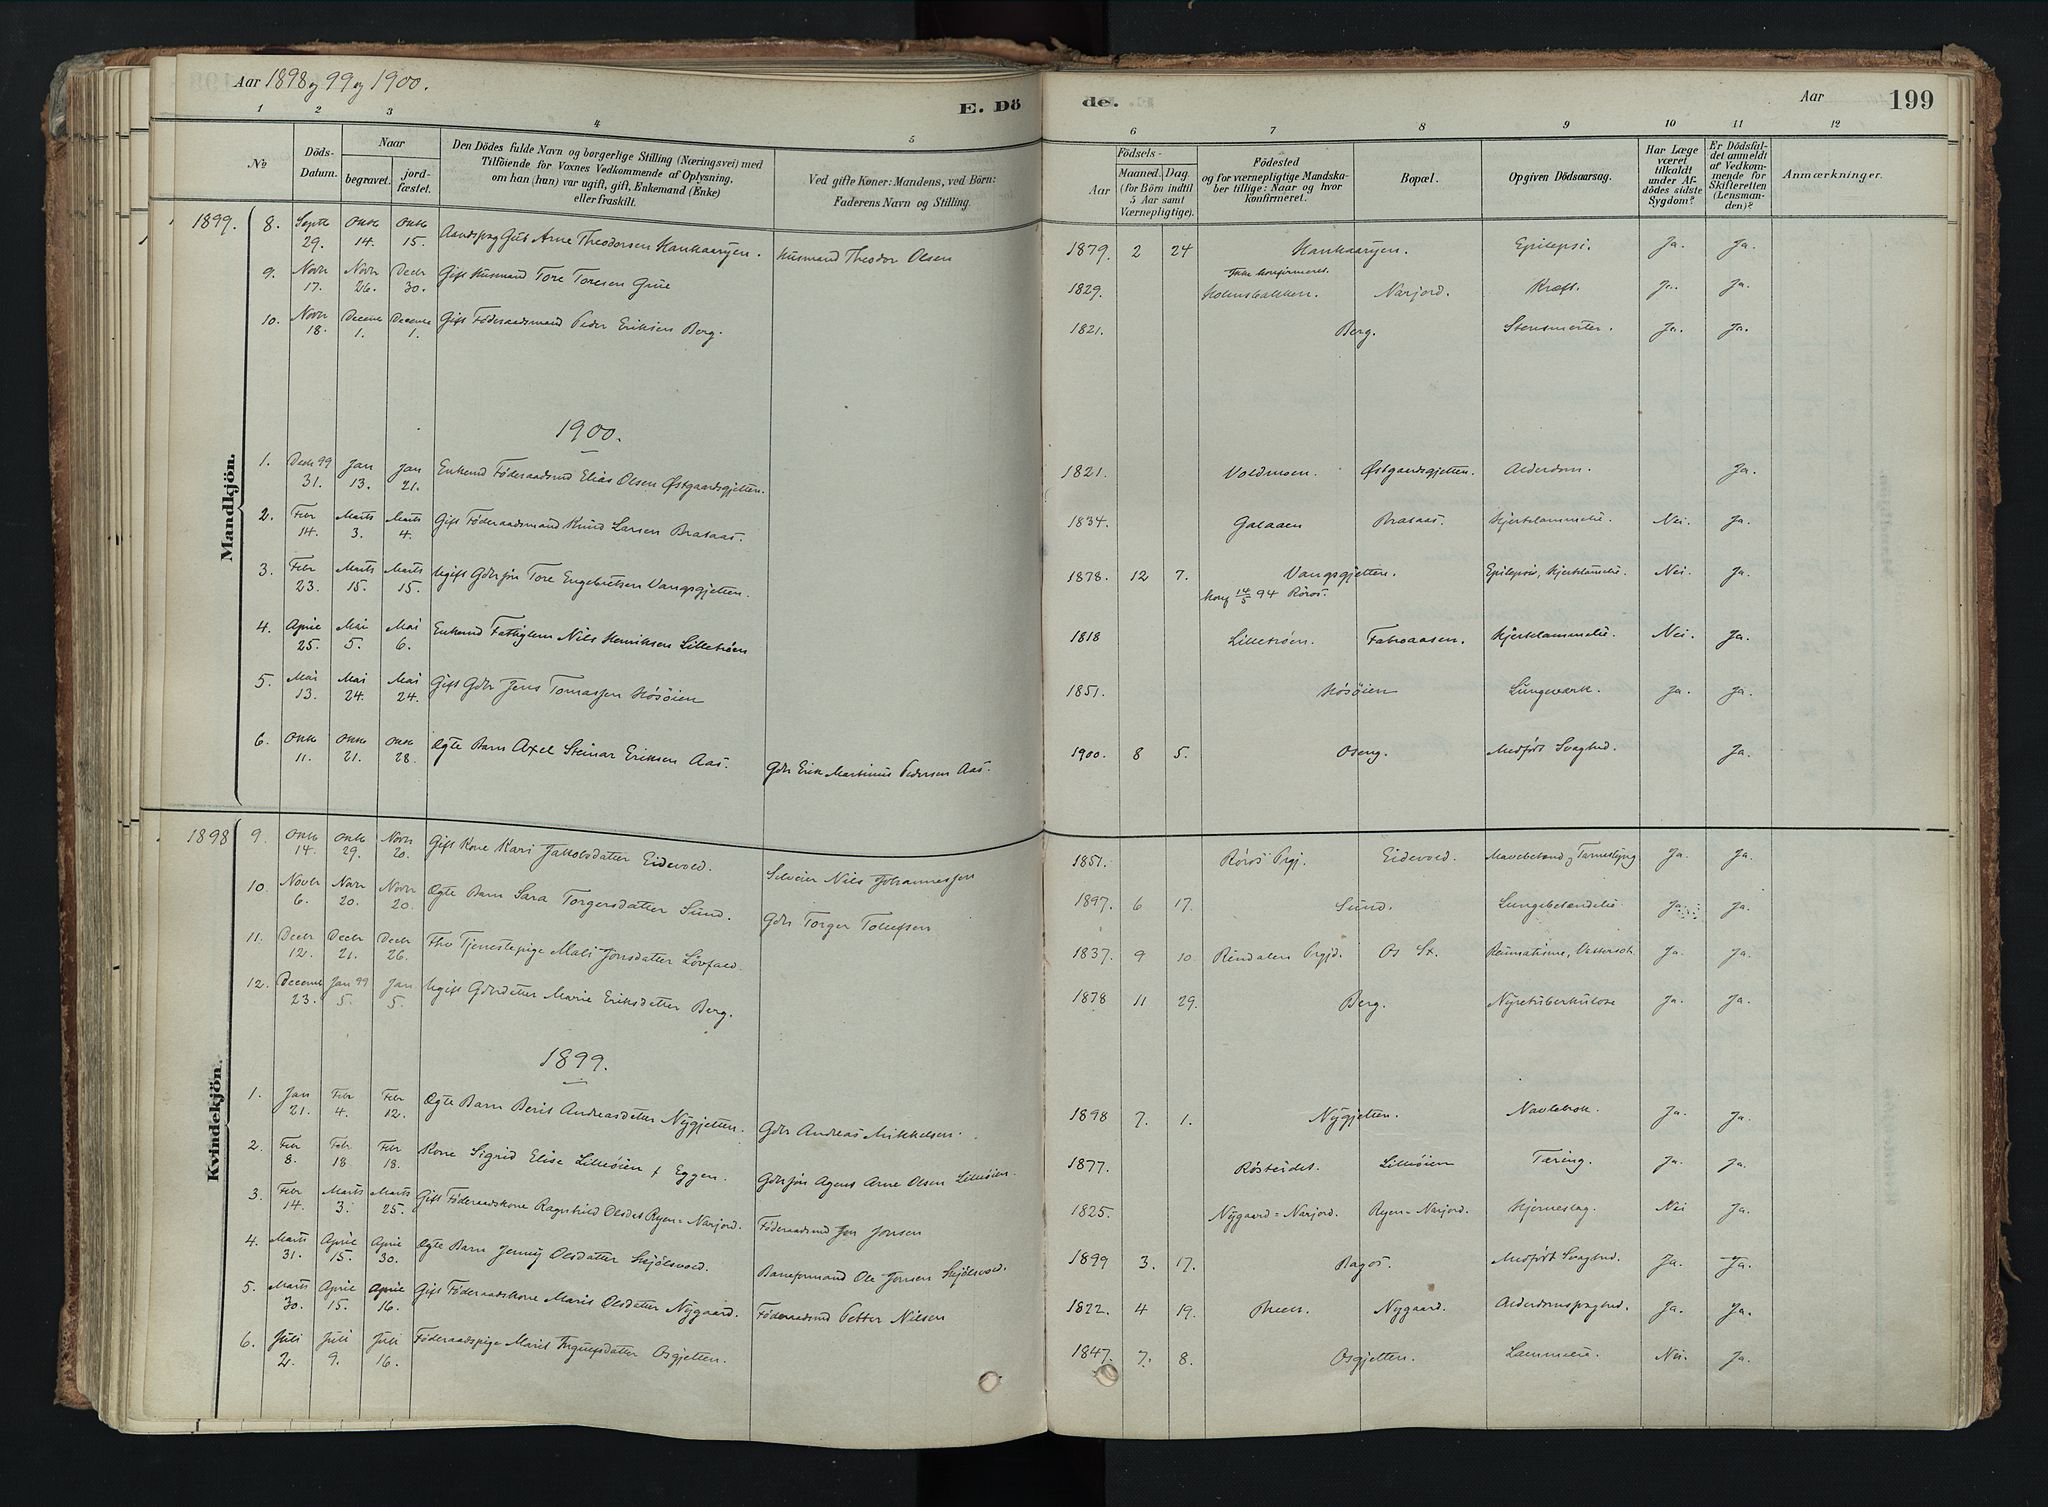 Aar 1898 og 99 og 1900.
E. Dö
de.
Aar
199
1 2 3 4 5 6 7 8 9 10 11 12
№
Döds-Datum.
Naar
begravet.
jord-fæstet.
Den Dödes fulde Navn og borgerlige Stilling (Næringsvei) med
Tilföiende for Voxnes Vedkommende af Oplysning,
om han (hun) var ugift, gift, Enkemand (Enke)
eller fraskilt.
Ved gifte Koner: Mandens, ved Börn:
Faderens Navn og Stilling.
Födsels-
Aar
Maaned. Dag.
(for Börn indtil
5 Aar samt
Værnepligtige).
Födested
og for værnepligtige Mandska-
ber tillige: Naar og hvor
konfirmeret.
Bopæl.
Opgiven Dödsaarsag.
Har Læge
været
tilkaldt
under Af-
dödes sidste
Sygdom?
Er Dödsfal-
det anmeldt
af Vedkom-
mende for
Skifteretten
(Lensman-
den)?
Anmærkninger.
Mandkjön.
1899. 8. Septb 29. Oktb 14. Oktb 15. Arne Theodorsen Husmand Theodor Olsen 1879. 2 24 Ikke konfirmeret. Epilepsi. Ja. Ja.
9. Novbr 17. Novbr 26. Decbr 30. Gift Husmand Tore Toresen Grue 1829. Holmsbakken. Narjord. Kræft. Ja. Ja.
10. Novbr 18. Decemb 1. Decemb 1. Gift Föderaadsmand Peder Eriksen Berg. 1821. Berg. Ja. Ja.
1900.
1. Decbr 99 31. Jan 13. Jan 21. Enkemd Föderaadsmd Elias Olsen Østgaardsgjetten. 1821. Voldmoen. Østgaardsgjetten. Alderdom. Ja.
2. Febr 14. Marts 3. Marts 4. Gift Föderaadsmand Knud Larsen Brataas. 1834. Galaaen Brataas. Hjertelammelse. Nei. Ja.
3. Febr 23. Marts 15. Marts 15. Ugift Gdbrsön Tore Engebretsen Vangsgjetten. 1878. 12 7. Vangsgjetten. Konf 14/5 94 Röros. Epilepsi, Hjertelammelse. Nei. Ja.
4. April 25. Mai 5. Mai 6. Enkemd Fattiglem Nils Henriksen Lilletröen 1818 Lilletröen. Hjertelammelse. Nei. Ja.
5. Mai 13. Mai 24. Mai 24. Gift Gdbr Jens Tomassen Høsöien 1851. Høsöien Ja. Ja.
6. Oktb 11. Oktb 21. Oktb 28. Ægte Barn Axel Steinar Eriksen Aas. Gdbr Erik Martinus Pedersen Aas. 1900. 8 5. Oseng. Medfödt Svaghed. Ja.
Kvindekjön.
1898 9. Oktb 14. Oktb 29. Novbr 20. Gift Kone Kari Jakobsdatter Eidevold. Selveier Nils Johannessen 1851. Röros Prgj. Eidevold. Ja. Ja.
10. Novbr 6. Novbr 20. Novbr 20. Ægte Barn Sara Torgersdatter Sund. Gdbr Torger Tollefsen 1897. 6 17. Sund. Lungebetændelse. Ja. Ja.
11. Decbr 12. Decbr 21. Decbr 26. Fhv Tjenestepige Mali Jonsdatter Lövfald. 1837. 9 10. Rendalens Prgjd. Os St. Reumatisme, Vattersot. Ja. Ja.
12. Decemb 23. Jan 99 5. Jan 5. Ugift Gdbrdatter Marie Eriksdatter Berg. 1878 11 29. Berg. Nyretuberkulose Ja. Ja.
1899.
1. Jan 21. Febr 4. Febr 12. Ægte Barn Berit Andreasdatter Nygjetten. Gdbr Andreas Mikkelsen. 1898 7. 1. Nygjetten. Navlebrok. Ja. Ja.
2. Febr 8. Febr 18 Febr 18. Kone Sigrid Elise Lilleöien f Eggen. Gdbrsön Agent Arne Olsen Lilleöien. 1877. Rösteidet. Lilleöien Tæring. Ja. Ja.
3. Febr 14. Marts 3. Marts 25. Gift Föderaadskone Ragnhild Olsdtr Ryen = Narjord. Föderaadsmd Jon Jonsen 1825. Nygaard = Narjord. Ryen = Narjord. Hjerneslag. Nei Ja.
4. Marts 31. April 15. April 30. Ægte Barn Jenny Olsdatter Skjölsvold. Baneformand Ole Jonsen Skjölsvold. 1899 3. 17. Medfödt Svaghed. Ja. Ja.
5. Marts 30. April 15. April 16. Gift Föderaadskone Marit Olsdatter Nygaard. Föderaadsmd Petter Nilsen 1822. 4 19. Nygaard. Alderdomssvaghed. Ja. Ja.
6. Juli 2. Juli 9. Juli 16. Föderaadspige Marit Osgjetten. 1847. 7. 8. Osgjetten. Nei. Ja.